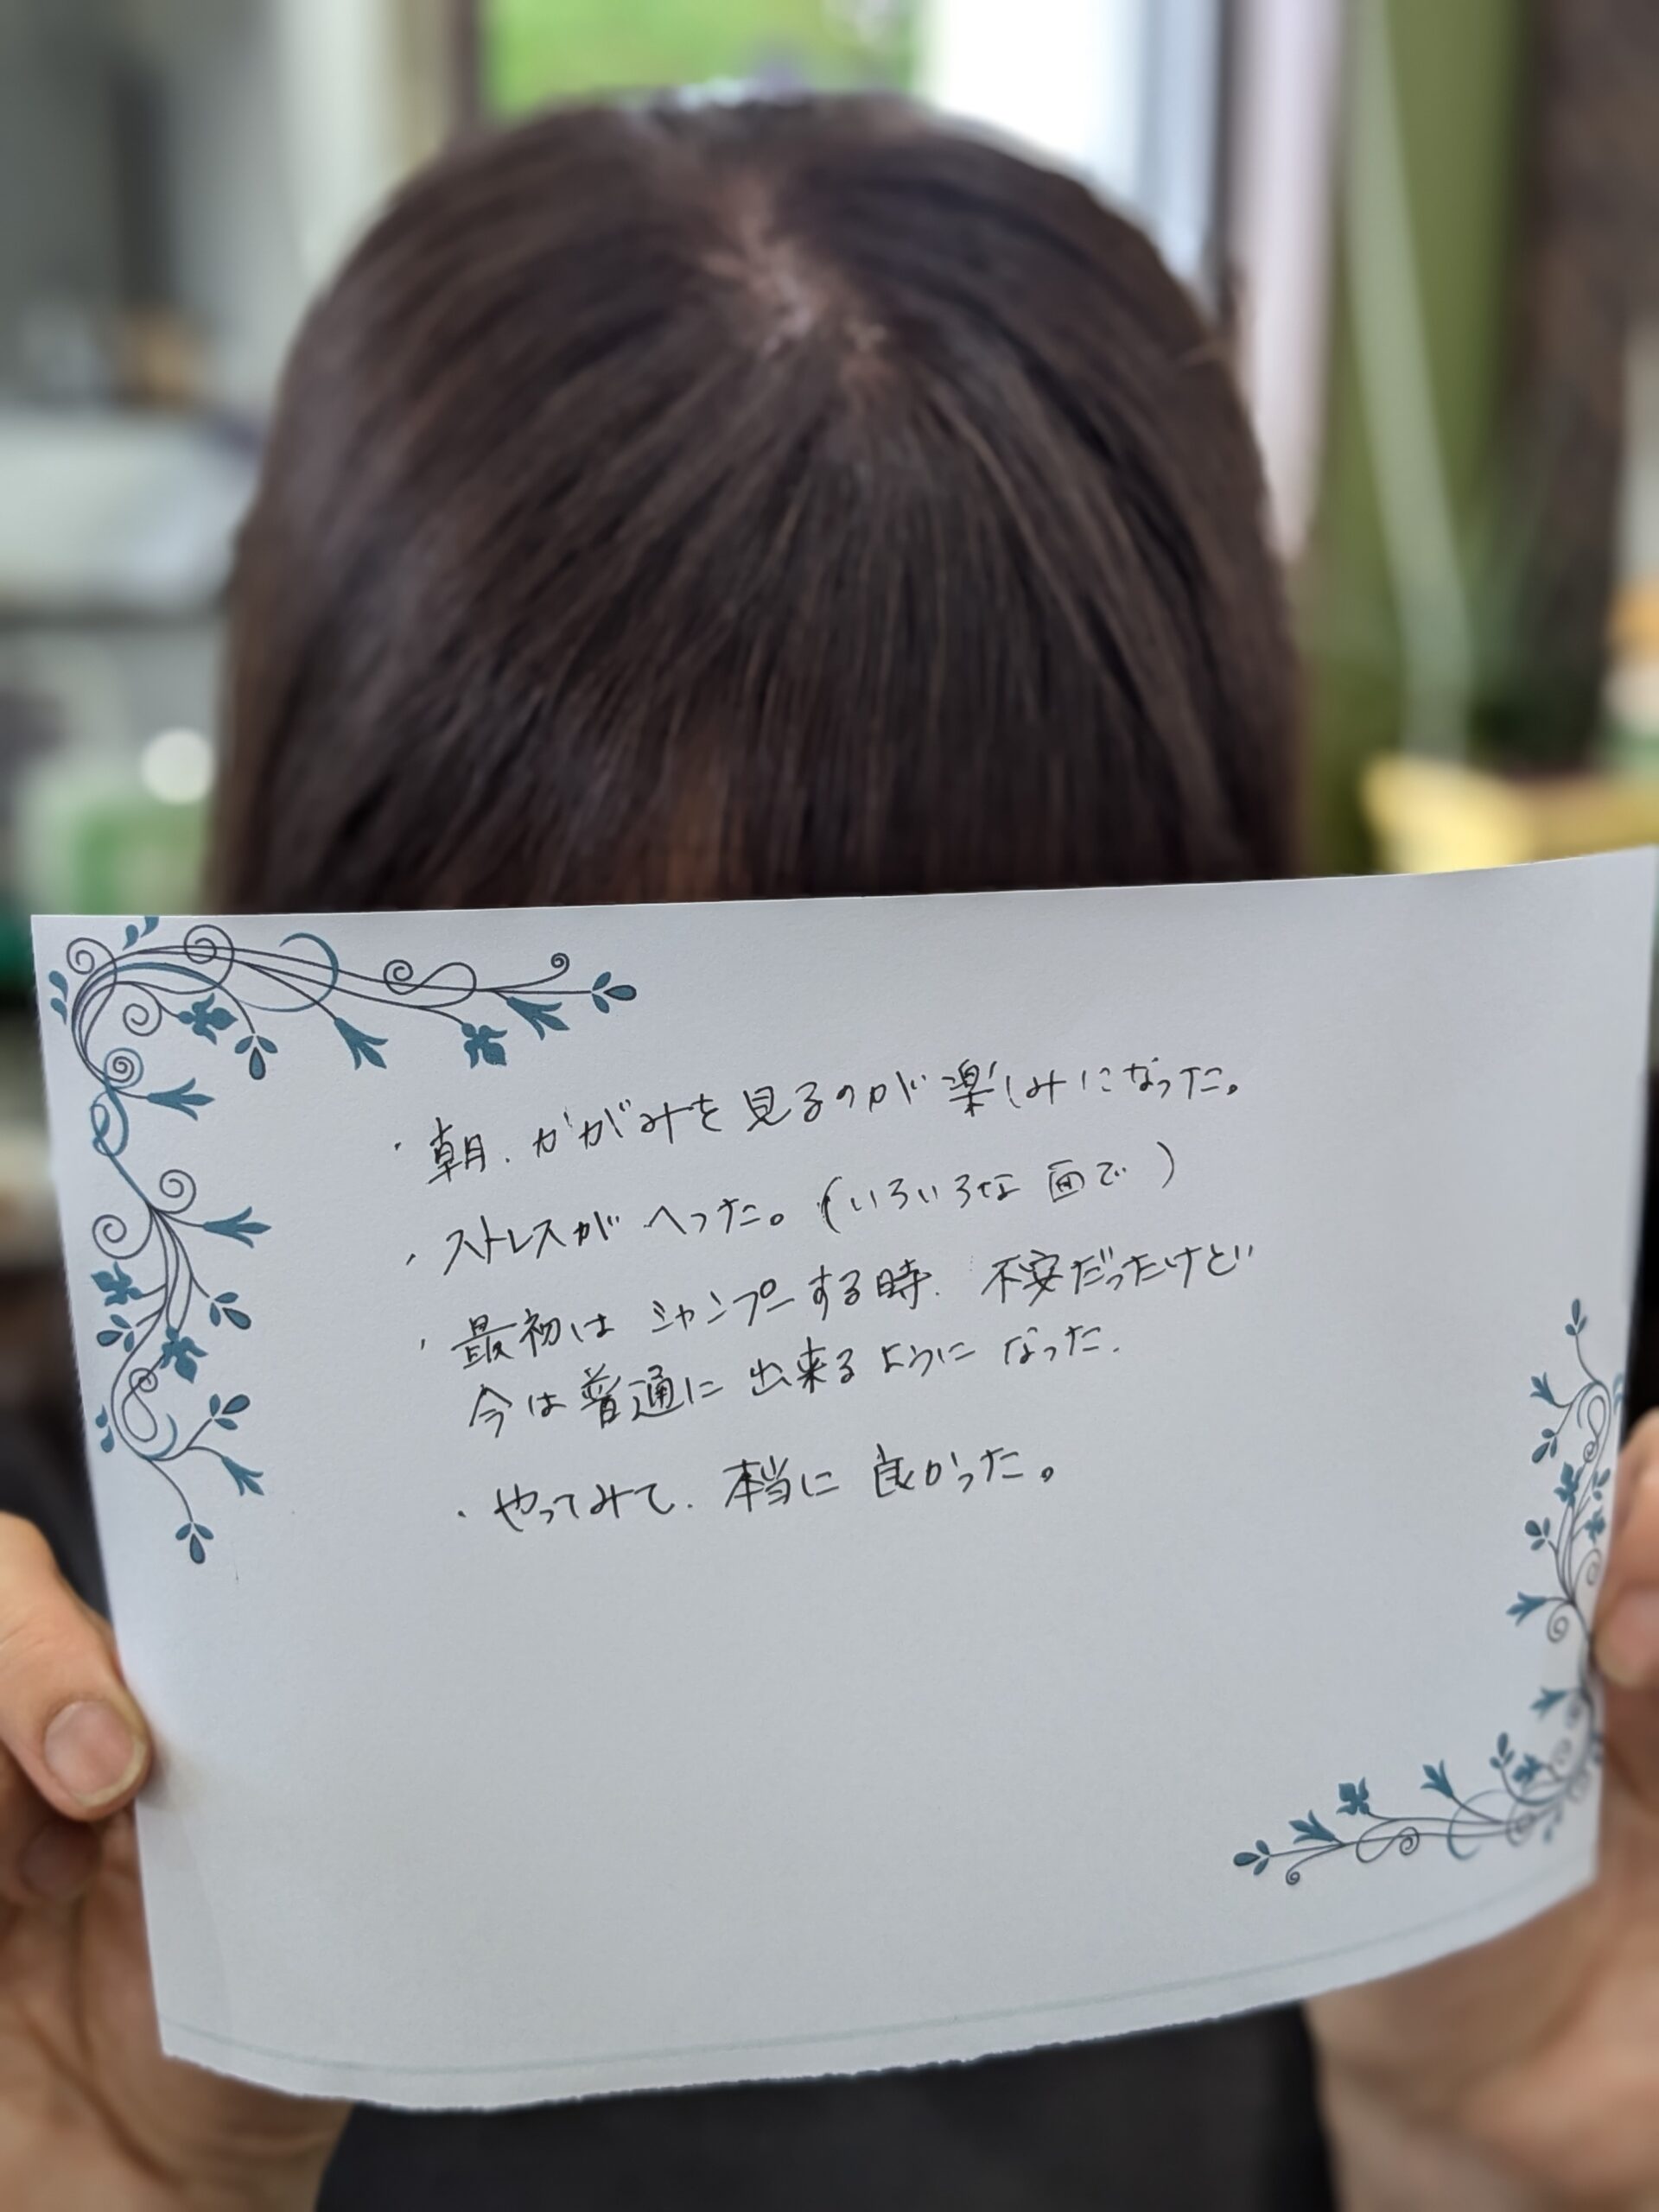 ・朝、かがみを見るのが楽しみになった。
・ストレスがへった。(いろいろな面で)
・最初はシャンプーする時、不安だったけど
今は普通に出来るようになった。
・やってみて、本当に良かった。